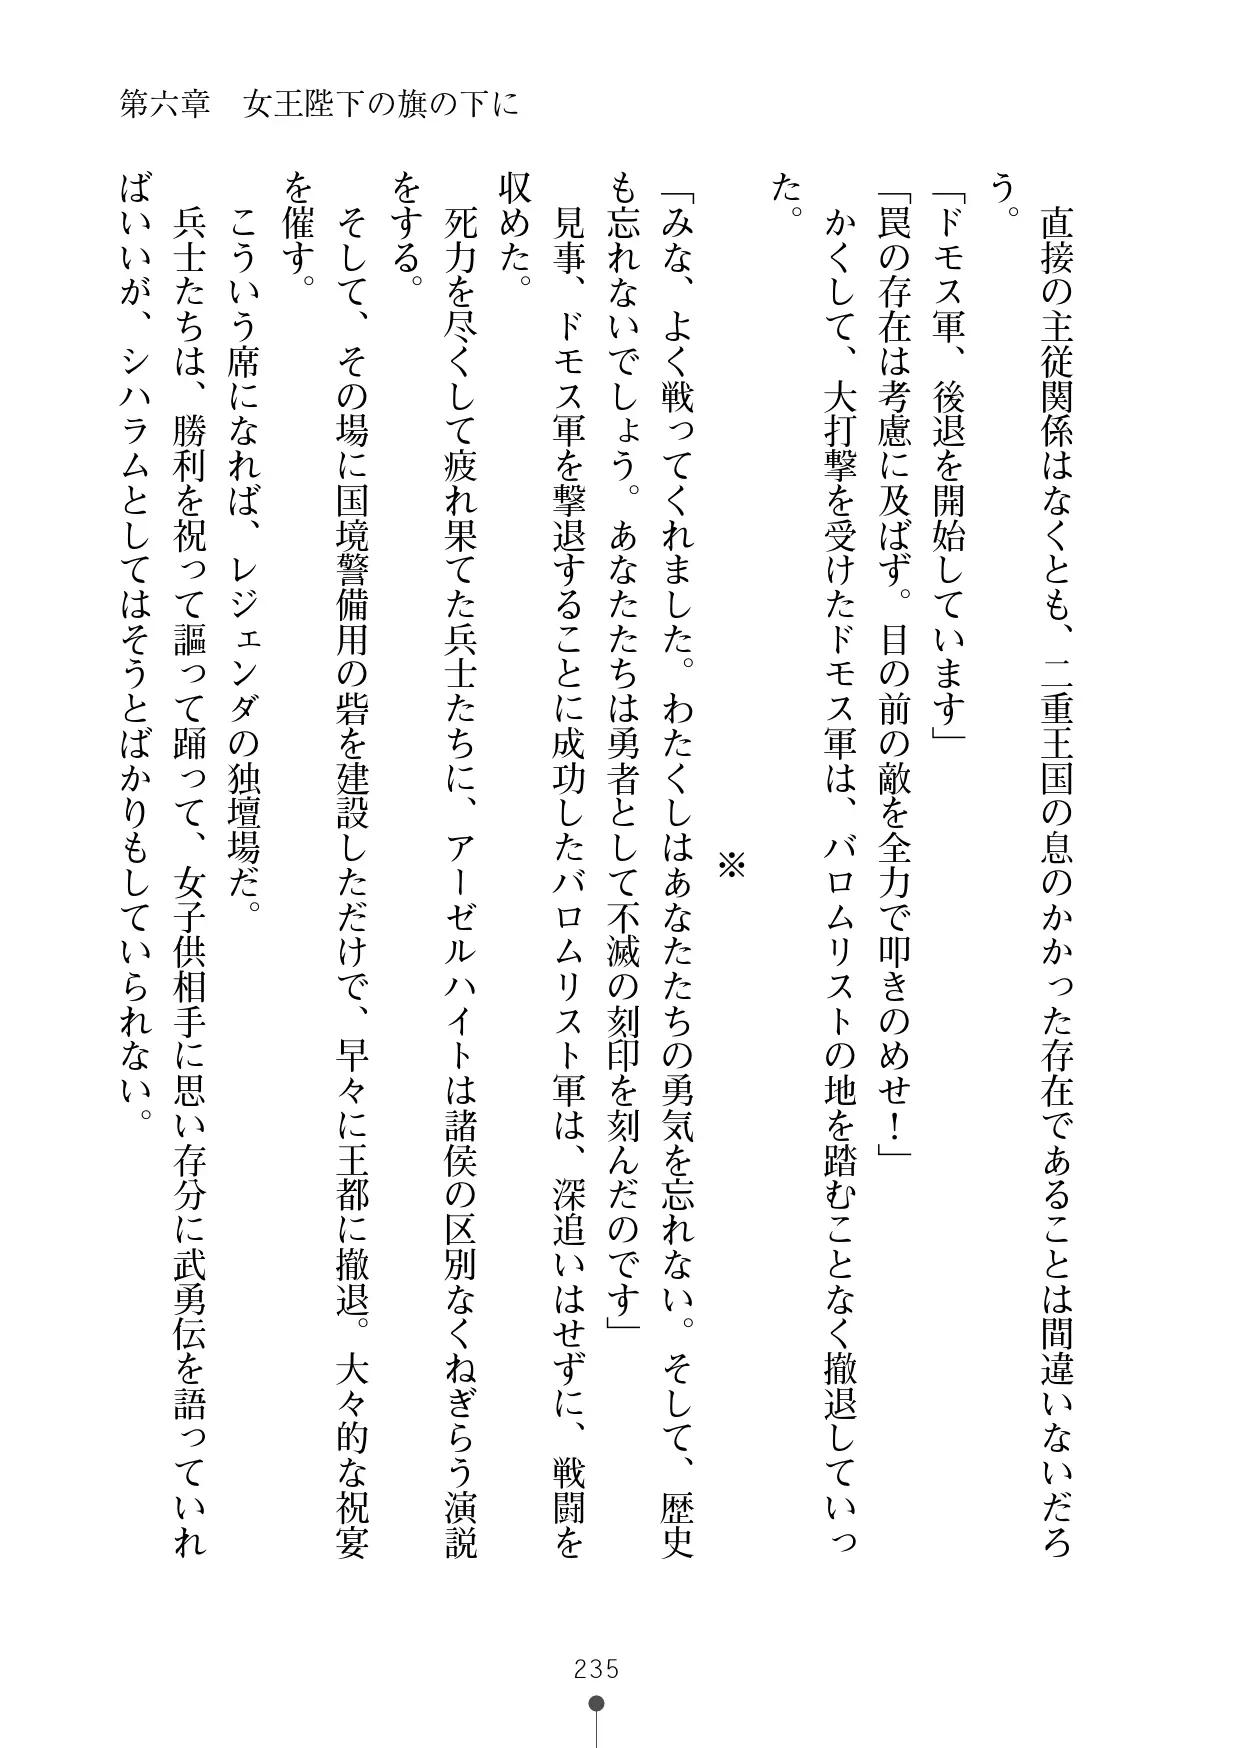 第六章　女王陛下の旗の下に
　直接の主従関係はなくとも、二重王国の息のかかった存在であることは間違いないだろ
う。
「ドモス軍、後退を開始しています」
「罠の存在は考慮に及ばず。目の前の敵を全力で叩きのめせ！」
　かくして、大打撃を受けたドモス軍は、バロムリストの地を踏むことなく撤退していっ
た。
※
「みな、よく戦ってくれました。わたくしはあなたたちの勇気を忘れない。そして、歴史
も忘れないでしょう。あなたたちは勇者として不滅の刻印を刻んだのです」
　見事、ドモス軍を撃退することに成功したバロムリスト軍は、深追いはせずに、戦闘を
収めた。
　死力を尽くして疲れ果てた兵士たちに、アーゼルハイトは諸侯の区別なくねぎらう演説
をする。
　そして、その場に国境警備用の砦を建設しただけで、早々に王都に撤退。大々的な祝宴
を催す。
　こういう席になれば、レジェンダの独壇場だ。
　兵士たちは、勝利を祝って謳って踊って、女子供相手に思い存分に武勇伝を語っていれ
ばいいが、シハラムとしてはそうとばかりもしていられない。
235